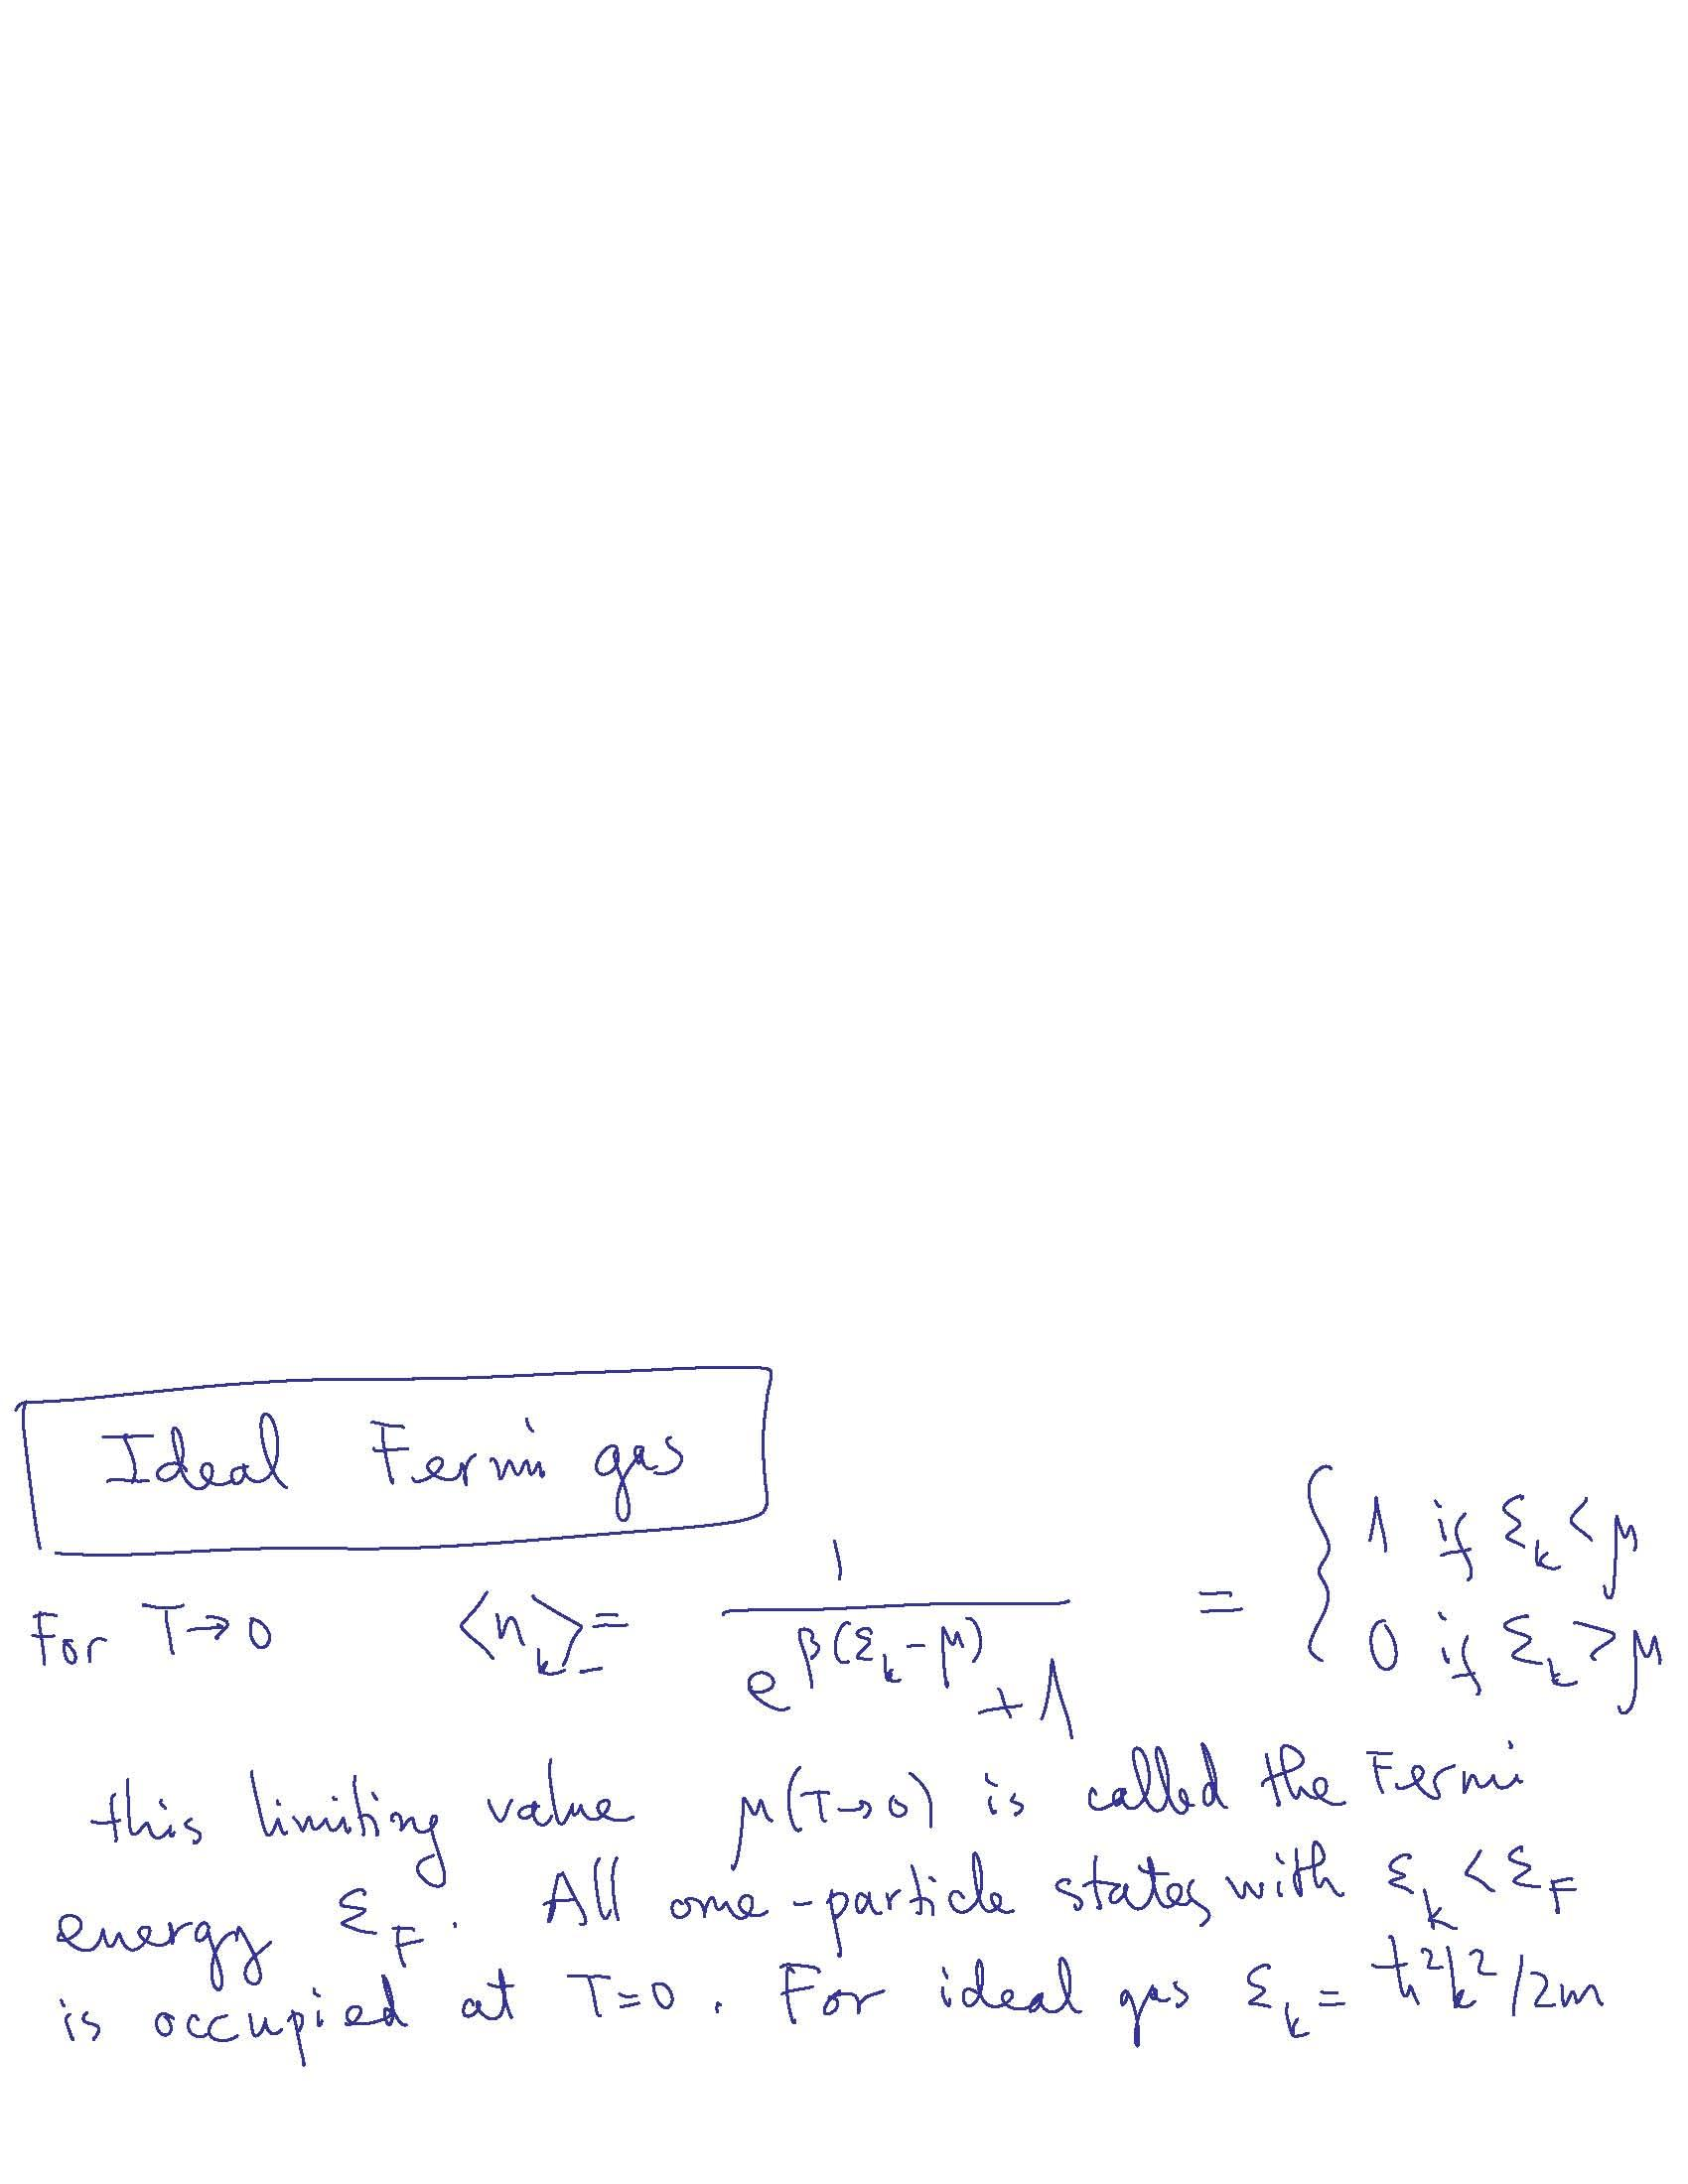 Ideal Fermi gas
For T→0 <n_k>_- = 1 / (e^{β(ε_k - μ)} + 1) = { 1 if ε_k < μ
0 if ε_k > μ
this limiting value μ(T→0) is called the Fermi
energy ε_F. All one-particle states with ε_k < ε_F
is occupied at T=0. For ideal gas ε_k = ħ²k²/2m